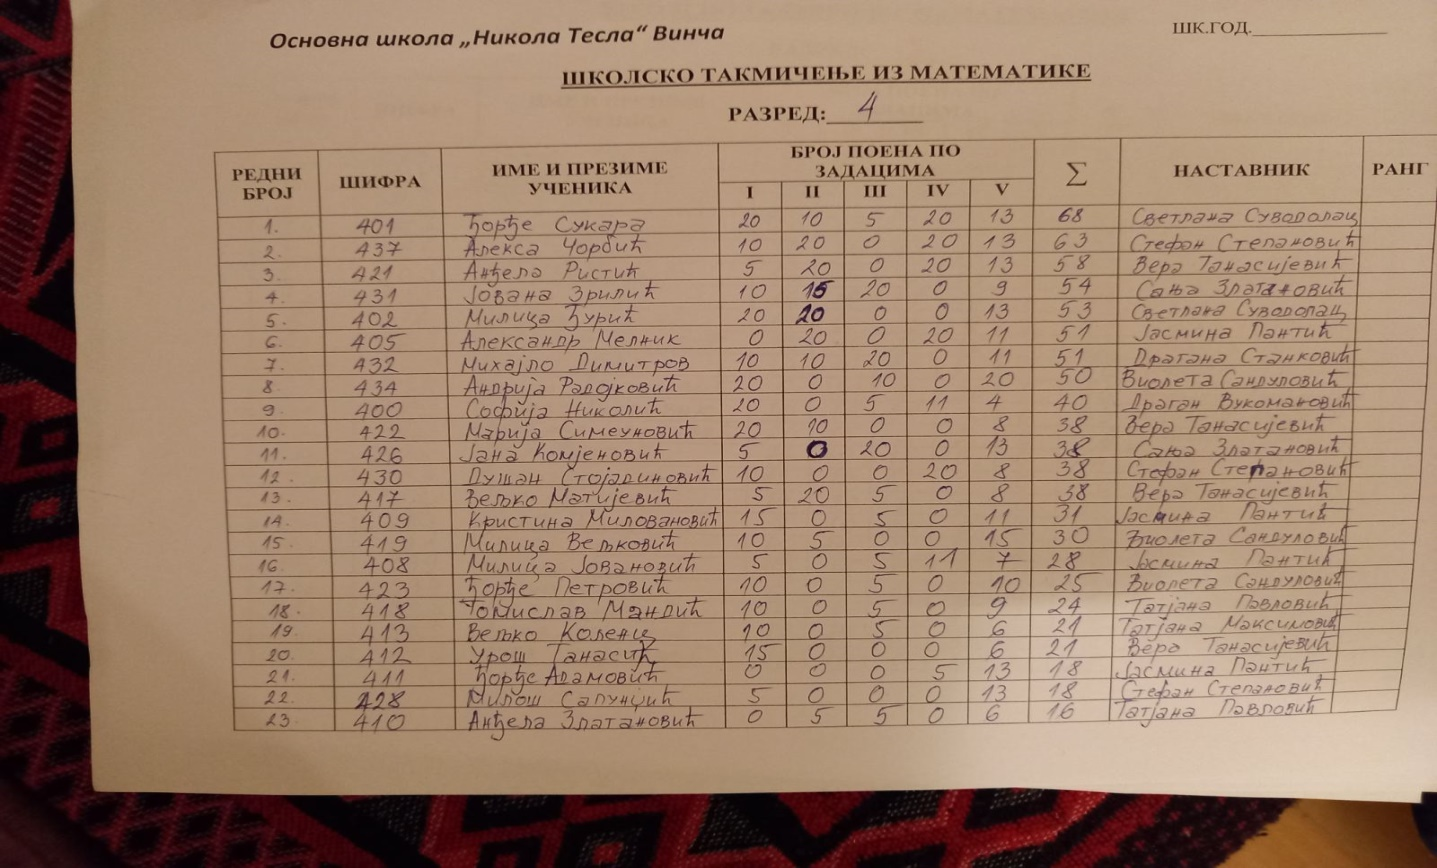 Основна школа „Никола Тесла“ Винча
ШК.ГОД.
ШКОЛСКО ТАКМИЧЕЊЕ ИЗ МАТЕМАТИКЕ
РАЗРЕД: 4
РЕДНИ БРОЈ ШИФРА ИМЕ И ПРЕЗИМЕ УЧЕНИКА БРОЈ ПОЕНА ПО ЗАДАЦИМА Σ НАСТАВНИК РАНГ
I II III IV V
1. 401 Ђорђе Сукара 20 10 5 20 13 68 Светлана Суводолац
2. 437 Алекса Чорбић 10 20 0 20 13 63 Стефан Степановић
3. 421 Анђела Ристић 5 20 0 20 13 58 Вера Танасијевић
4. 431 Јована Зрилић 10 15 20 0 9 54 Сања Златановић
5. 402 Милица Ђурић 20 20 0 0 13 53 Светлана Суводолац
6. 405 Александр Мелник 0 20 0 20 11 51 Јасмина Пантић
7. 432 Михајло Димитров 10 10 20 0 11 51 Драгана Станковић
8. 434 Андрија Радојковић 20 0 10 0 20 50 Виолета Сандуловић
9. 400 Софија Николић 20 0 5 11 4 40 Драган Вукомановић
10. 422 Марија Симеуновић 20 10 0 0 8 38 Вера Танасијевић
11. 426 Јана Комјеновић 5 0 20 0 13 38 Сања Златановић
12. 430 Душан Стојадиновић 10 0 0 20 8 38 Стефан Степановић
13. 417 Вељко Матијевић 5 20 5 0 8 38 Вера Танасијевић
14. 409 Кристина Миловановић 15 0 5 0 11 31 Јасмина Пантић
15. 419 Милица Вељковић 10 5 0 0 15 30 Виолета Сандуловић
16. 408 Милица Јовановић 5 0 5 11 7 28 Јасмина Пантић
17. 423 Ђорђе Петровић 10 0 5 0 10 25 Виолета Сандуловић
18. 418 Томислав Мандић 10 0 5 0 9 24 Татјана Павловић
19. 413 Вељко Коленц 10 0 5 0 6 21 Татјана Максимовић
20. 412 Урош Танасић 15 0 0 0 6 21 Вера Танасијевић
21. 411 Ђорђе Адамовић 0 0 0 5 13 18 Јасмина Пантић
22. 428 Милош Сапунџић 5 0 0 0 13 18 Стефан Степановић
23. 410 Анђела Златановић 0 5 5 0 6 16 Татјана Павловић